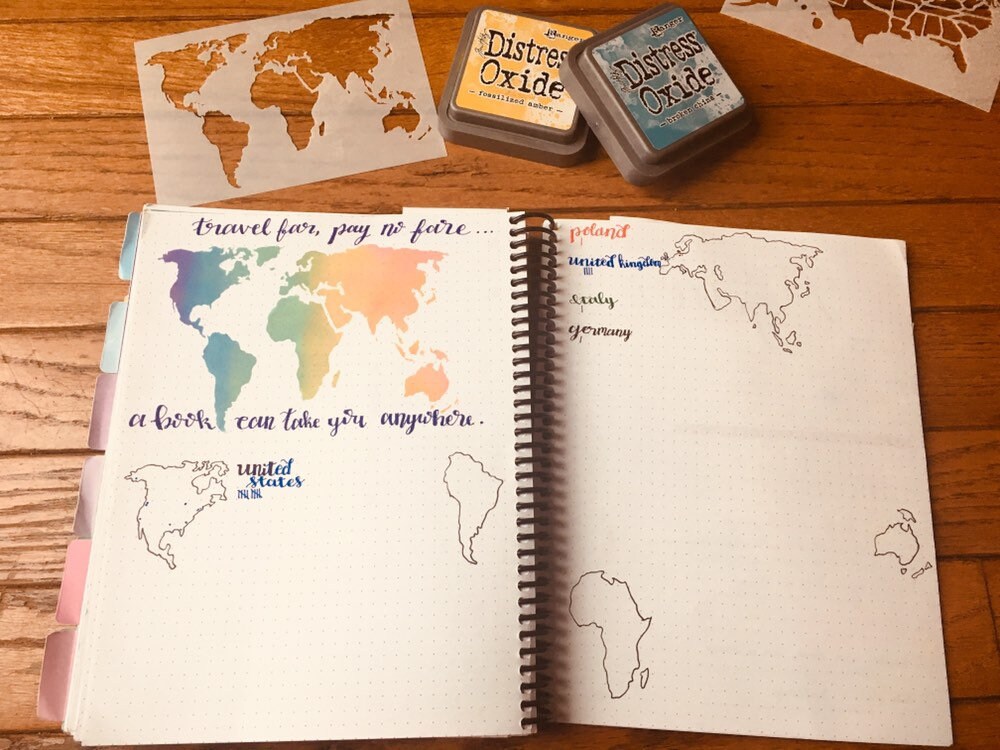 Ranger
Distress
Oxide
— fossilized amber —
Ranger
Distress
Oxide
— broken china —
travel far, pay no fare...
a book can take you anywhere.
united
states
poland
united kingdom
italy
germany